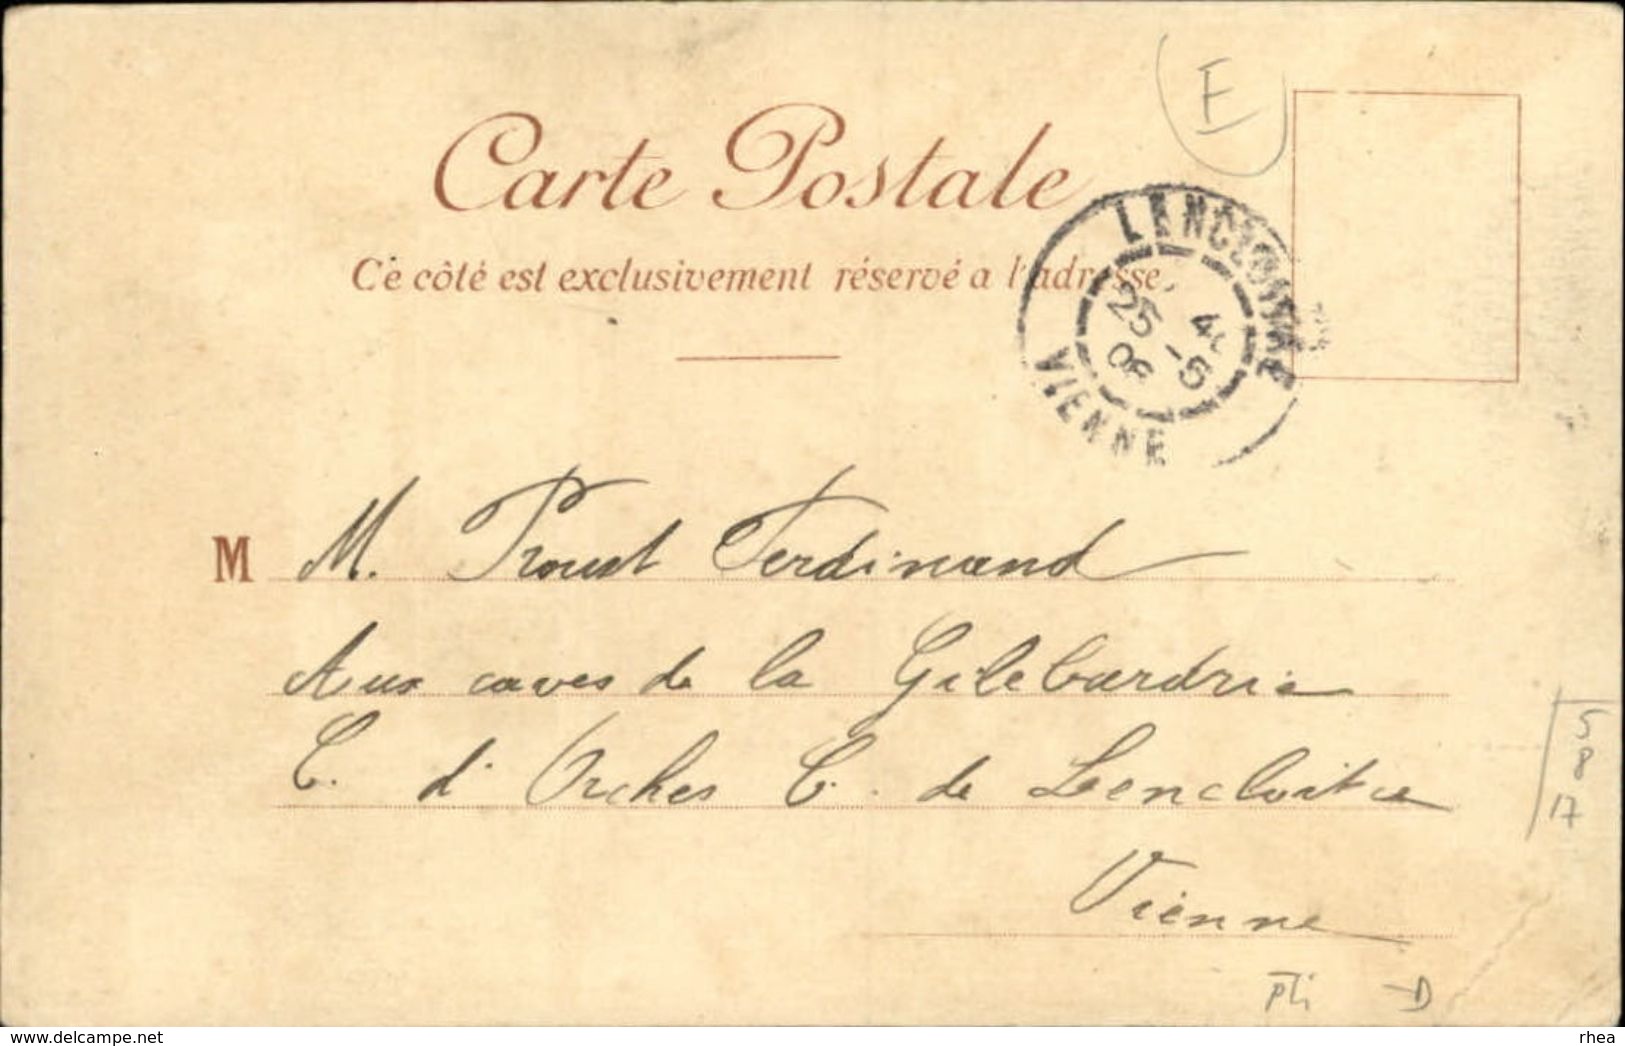 E
Carte Postale
Ce côté est exclusivement réservé a l'adresse.
LENCLOITRE
25 -5
06
VIENNE
M M. Proust Ferdinand
Aux caves de la Gilebardrie
C. d'Orches C. de Lencloitre
Vienne
58
17
pli D
www.delcampe.net
rhea